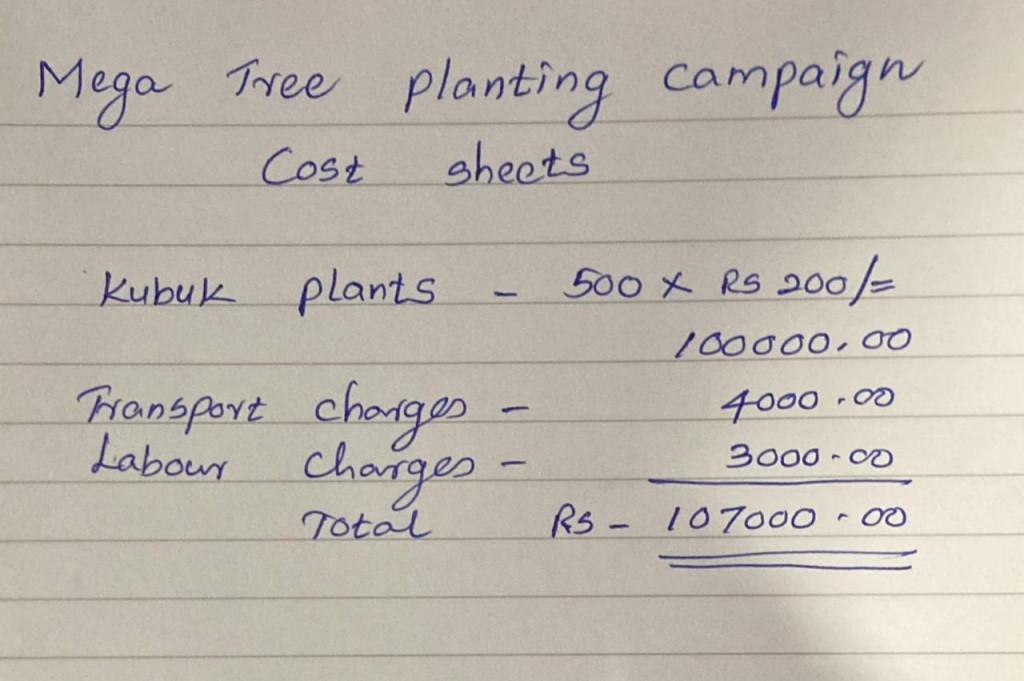 Mega Tree planting campaign
Cost sheets
Kubuk plants - 500 x RS 200/=
100000.00
Transport charges - 4000.00
Labour charges - 3000.00
Total RS - 107000.00